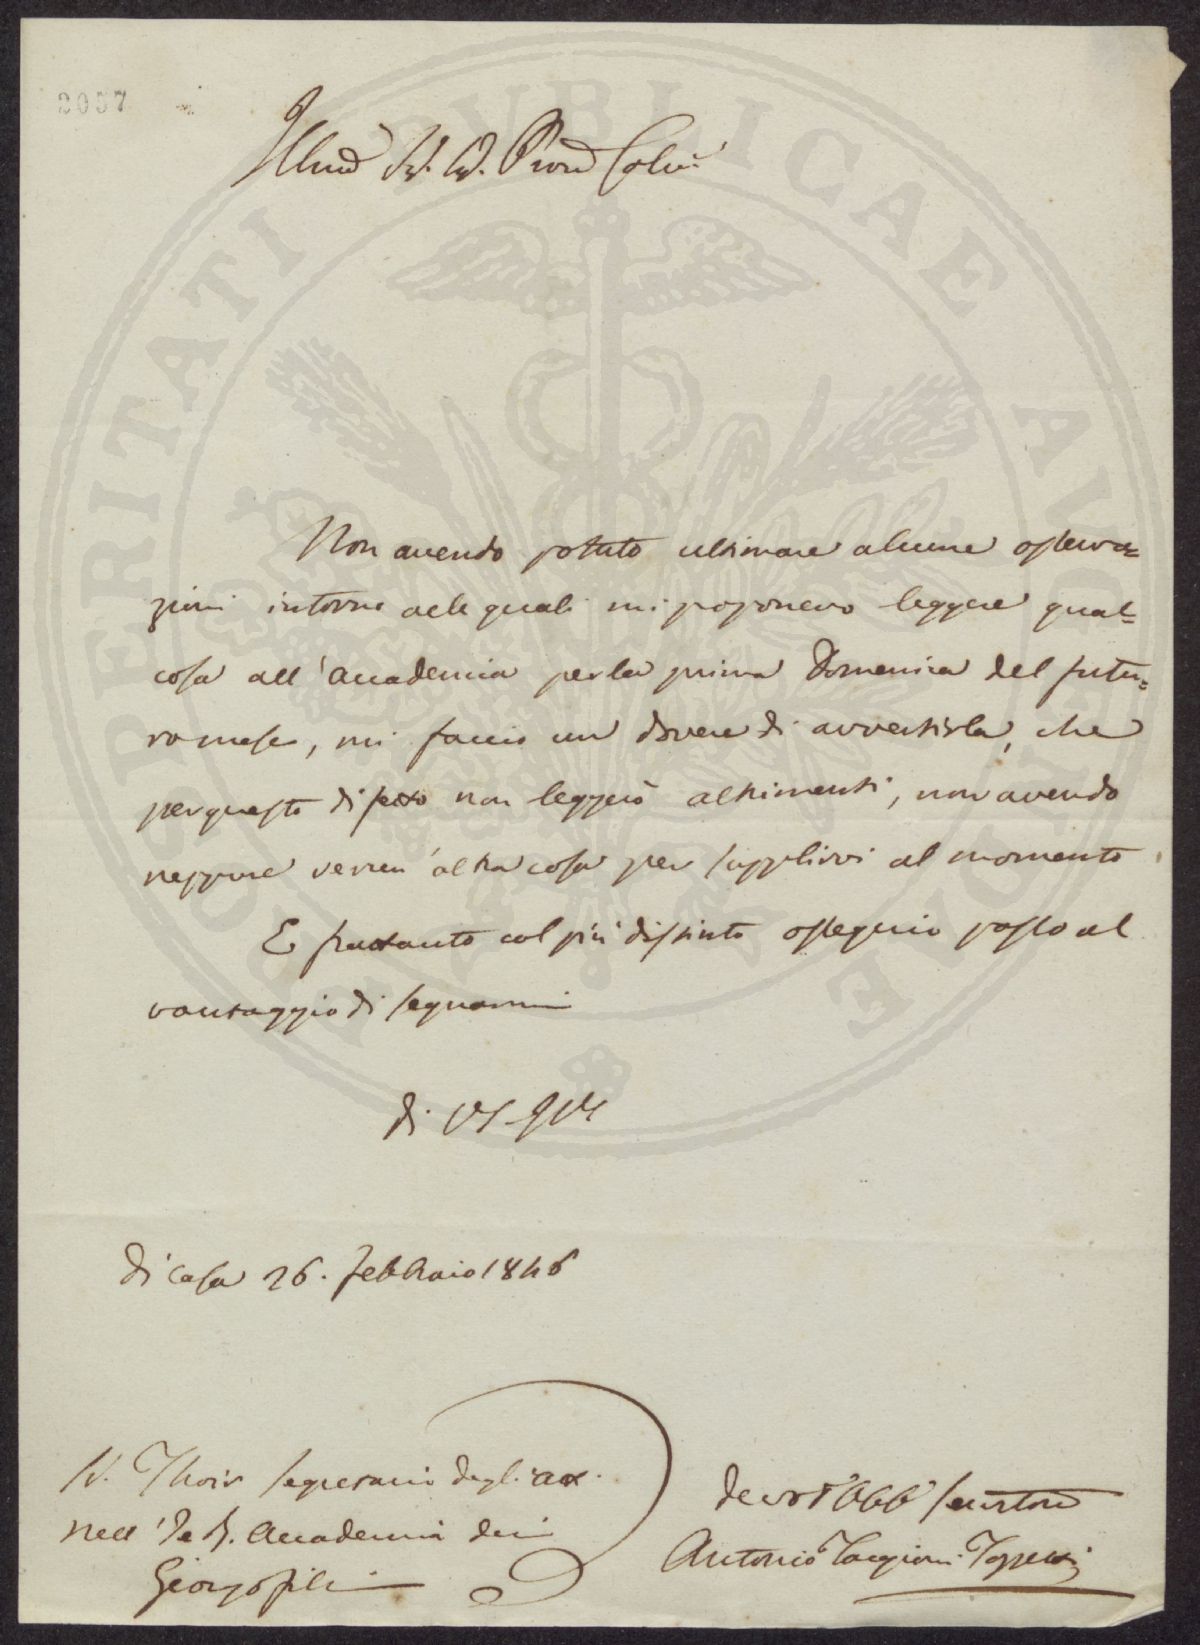 2057
Illmo Sig. Sig. Pron Colmo
Non avendo potuto ultimare alcune osserva=
zioni intorno alle quali mi proponevo leggere qual=
cosa all'Accademia per la prima Domenica del futu=
ro mese, mi faccio un dovere di avvertirla, che
per questo di fatto non leggerò altrimenti, non avendo
neppure verun'altra cosa per supplirvi al momento
E frattanto col più distinto ossequio passo al
vantaggio di segnarmi
di VS Illma
di Casa 26. Febbraio 1846
Sig. Segretario degli atti
nell'I. e R. Accademia dei
Georgofili
devot obb servitore
Antonio Targioni Tozzetti
PROSPERITATI PUBLICAE AUGENDAE